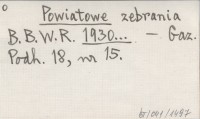 Powiatowe zebrania
B.B.W.R. 1930... — Gaz.
Podh. 18, nr 15.